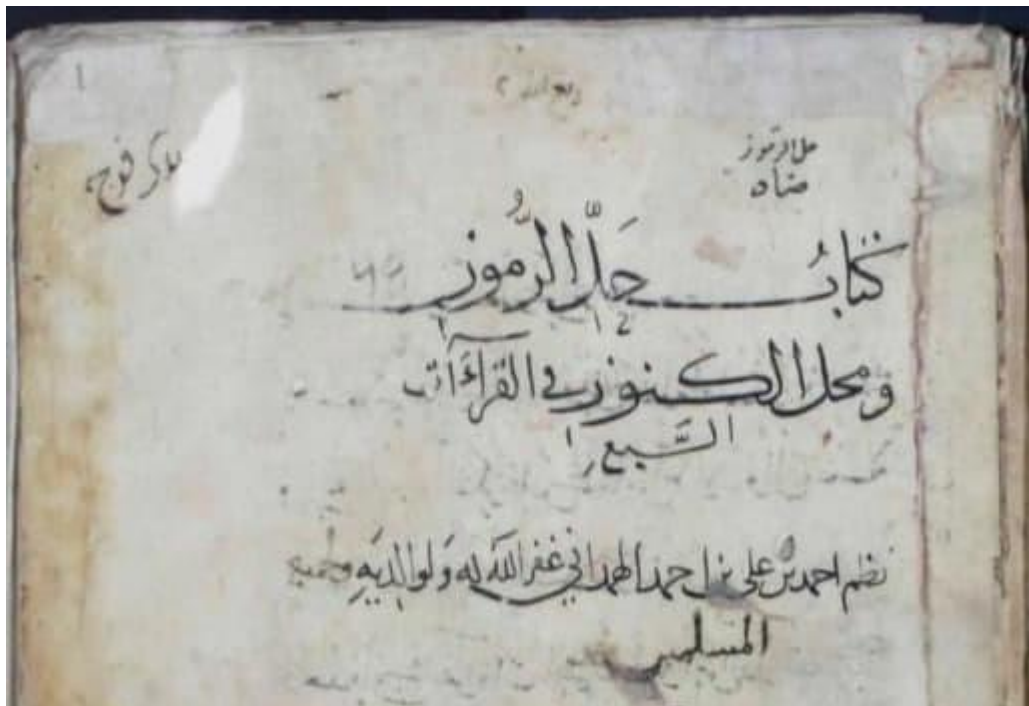 حل الرموز
كتابُ حَلّ الرُّموز
ومحل الكنوز في القرآءآت
السَّبع
نظم احمد بن علي بن احمد الهمداني غفر اللّه له وَلوالديَهِ ولجميع
المسلمين